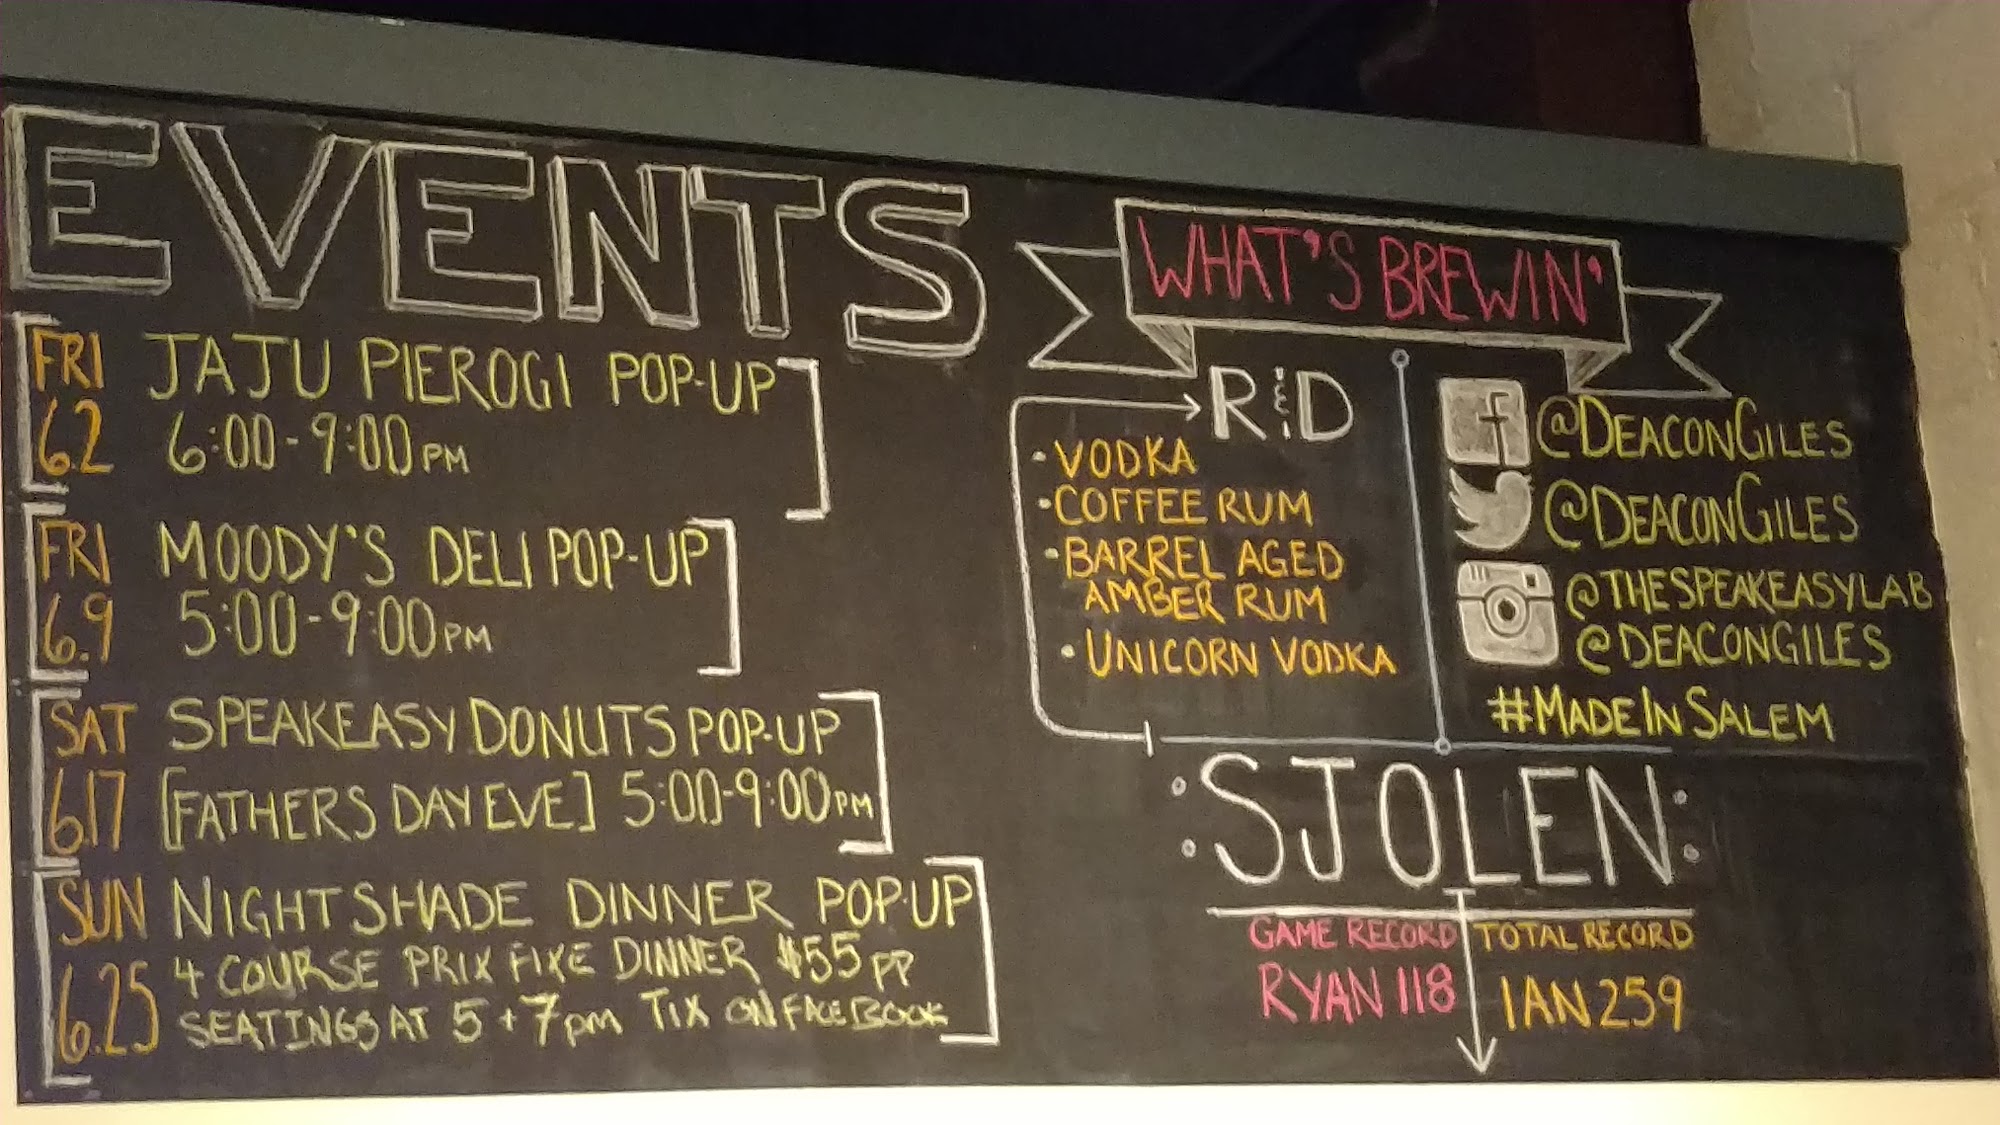 EVENTS
FRI
6.2
JAJU PIEROGI POP-UP
6:00-9:00PM
FRI
6.9
MOODY'S DELI POP-UP
5:00-9:00PM
SAT
6.17
SPEAKEASY DONUTS POP-UP
[FATHERS DAY EVE] 5:00-9:00PM
SUN
6.25
NIGHTSHADE DINNER POP-UP
4 COURSE PRIX FIXE DINNER $55 PP
SEATINGS AT 5 + 7pm TIX ON FACEBOOK
WHAT'S BREWIN'
R&D
• VODKA
• COFFEE RUM
• BARREL AGED
AMBER RUM
• UNICORN VODKA
f @DEACONGILES
@DEACONGILES
@THESPEAKEASYLAB
@DEACONGILES
#MADEINSALEM
:SJOLEN:
GAME RECORD
RYAN 118
TOTAL RECORD
IAN 259